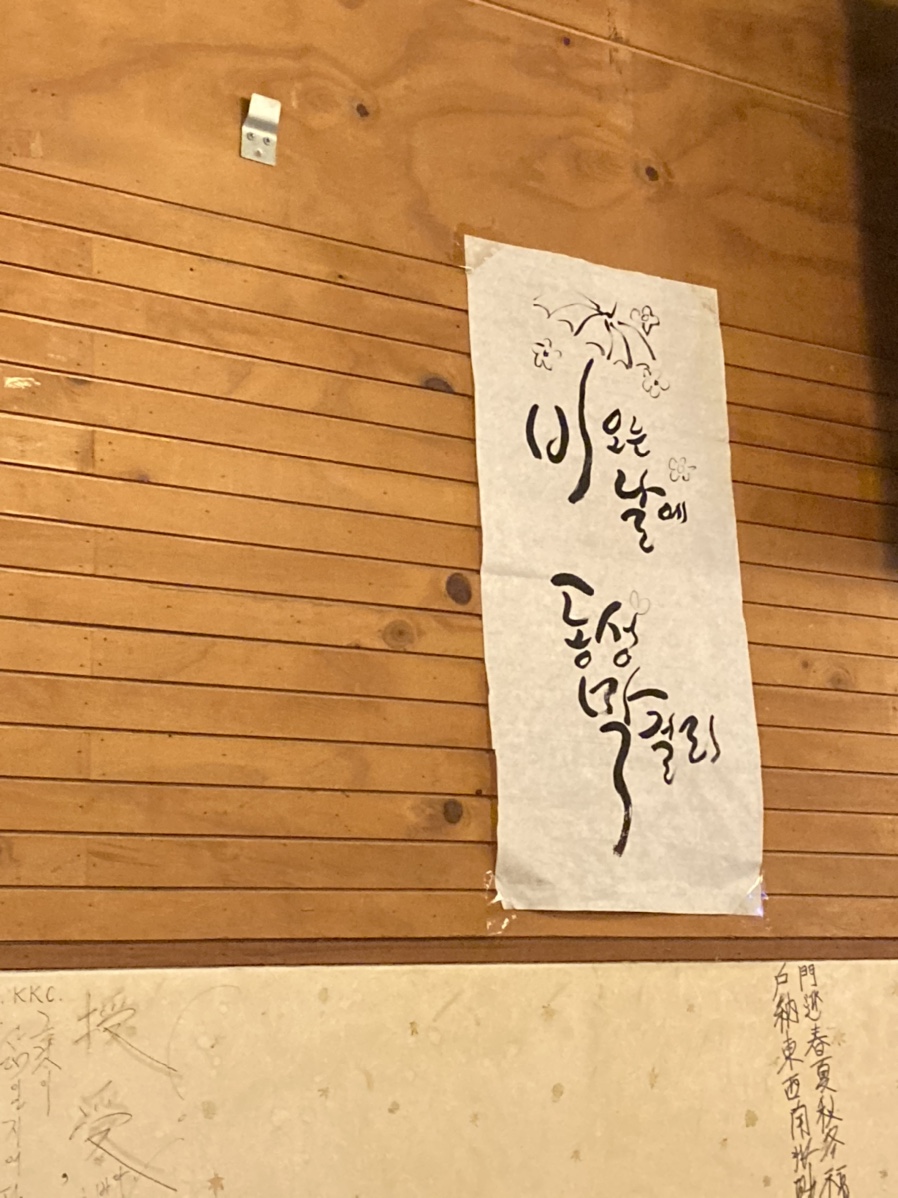 비 오는
날에
공성
막걸리
KKC.
授受
門迎春夏秋冬福
戶納東西南北財